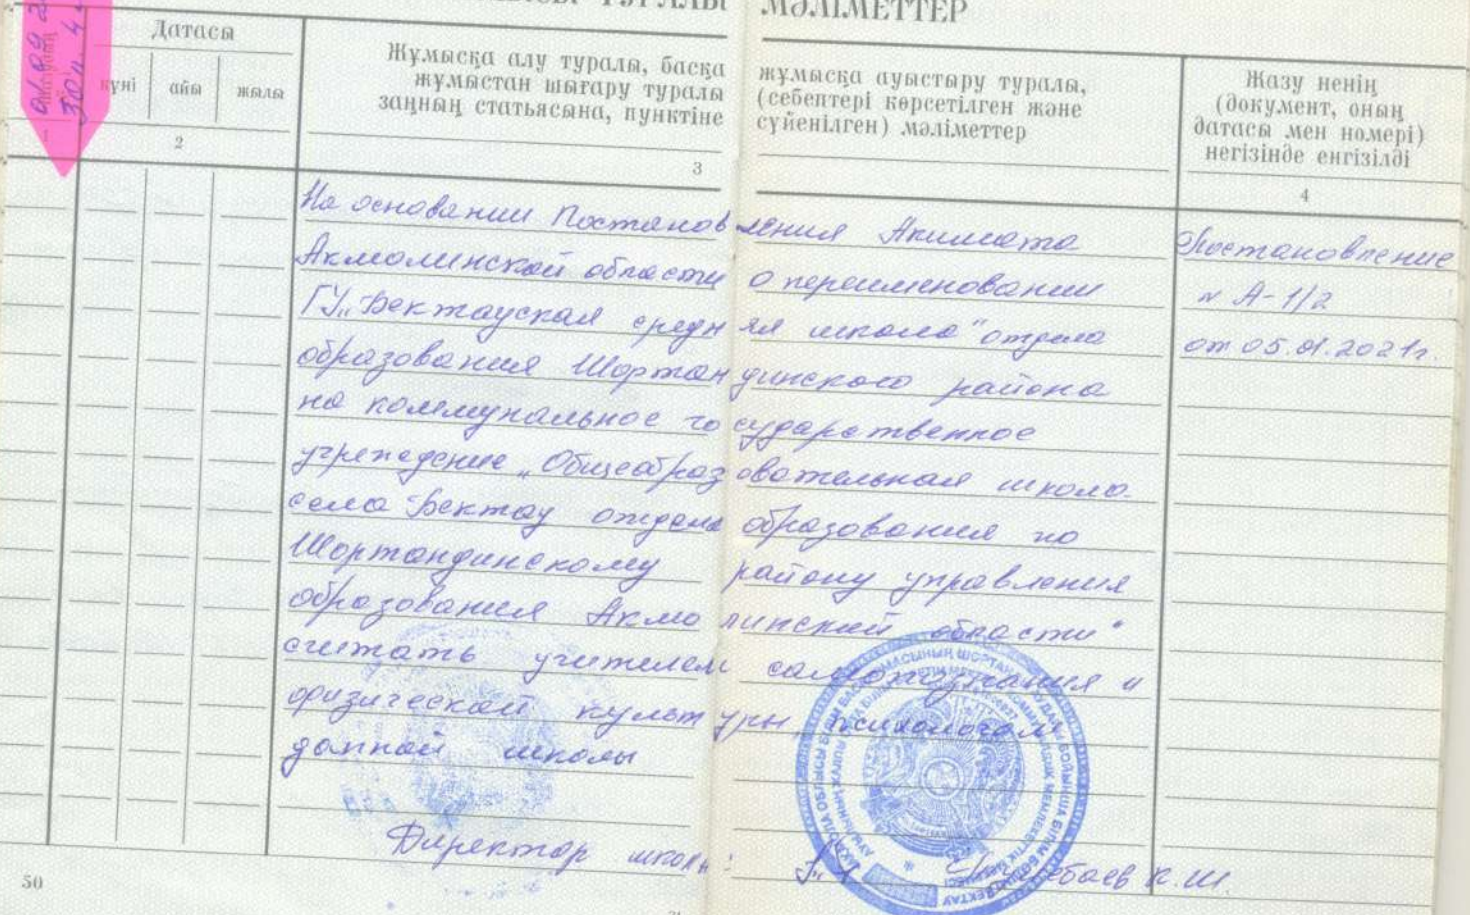 МӘЛІМЕТТЕР
Датасы
күні
айы
жылы
Жұмысқа алу туралы, басқа
жұмыстан шығару туралы
заңның статьясына, пунктіне
жұмысқа ауыстыру туралы,
(себептері көрсетілген және
сүйенілген) мәліметтер
Жазу ненің
(документ, оның
датасы мен номері)
негізінде енгізілді
1
2
3
4
На основании Постановления Акимата
Акмолинской области о переименовании
ГУ „Бектауская средняя школа" отдела
образования Шортандинского района
на коммунальное государственное
учреждение „Общеобразовательная школа
села Бектау отдела образования по
Шортандинскому району управления
образования Акмолинской области"
считать учителем самопознания и
физической культуры, психологом
данной школы
Постановление
№ А-1/2
от 05.01.2021г.
Директор школы:
К.Ш.
50